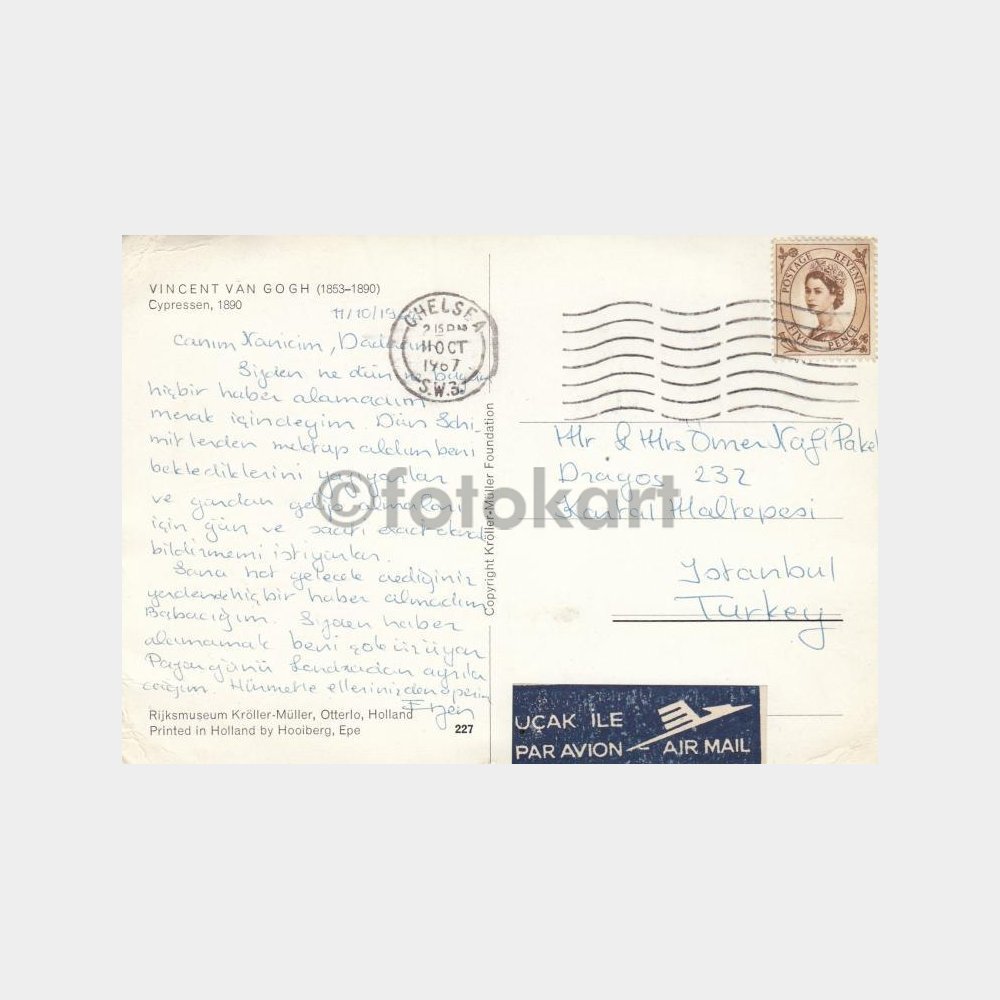 VINCENT VAN GOGH (1853–1890)
Cypressen, 1890
11/10/19
canım Nanicim,
Sizden ne dün ne bugün
hiçbir haber alamadım
merak içindeyim. Dün Schi-
mitlerden mektup aldım beni
beklediklerini yazıyorlar
ve gardan gelip almaları
için gün ve saati
bildirmemi istiyorlar.
Sana not gelecek dediğiniz
yerdende hiçbir haber almadım
Babacığım. Sizden haber
alamamak beni çok üzüyor
Pazar günü Londradan ayrıla
cağım. Hürmetle ellerinizden öperim
Rijksmuseum Kröller-Müller, Otterlo, Holland
Printed in Holland by Hooiberg, Epe
227
Copyright Kröller-Müller Foundation
CHELSEA
2 15 PM
11 OCT
1967
S.W.3.
POSTAGE REVENUE
FIVE PENCE
Mr & Mrs Ömer Nafi
Dragos 232
Kartal Maltepesi
Istanbul
Turkey
UÇAK ILE
PAR AVION – AIR MAIL
©fotokart